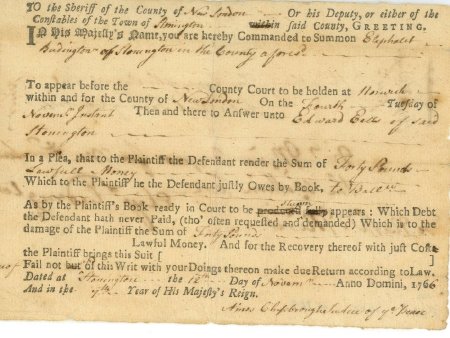 TO the Sheriff of the County of New London Or his Deputy, or either of the
Constables of the Town of Stonington within said County, GREETING.
IN His Majesty's Name, you are hereby Commanded to Summon Eliphalet
Budington of Stonington in the County afores.d
To appear before the County Court to be holden at Norwich
within and for the County of New London On the fourth Tuesday of
Novem.r Instant Then and there to Answer unto Edward Eells of said
Stonington
In a Plea, that to the Plaintiff the Defendant render the Sum of Forty Pounds
Lawfull Money
Which to the Plaintiff he the Defendant justly Owes by Book, to Ball.ce
As by the Plaintiff's Book ready in Court to be produced fully shewn appears : Which Debt
the Defendant hath never Paid, (tho' often requested and demanded) Which is to the
damage of the Plaintiff the Sum of Forty Pound
Lawful Money. And for the Recovery thereof with just Costs
the Plaintiff brings this Suit [
Fail not but of this Writ with your Doings thereon make due Return according to Law.
Dated at Stonington the 12th Day of Novem.r Anno Domini, 1766
And in the 7th Year of His Majesty's Reign.
of y.e Peace